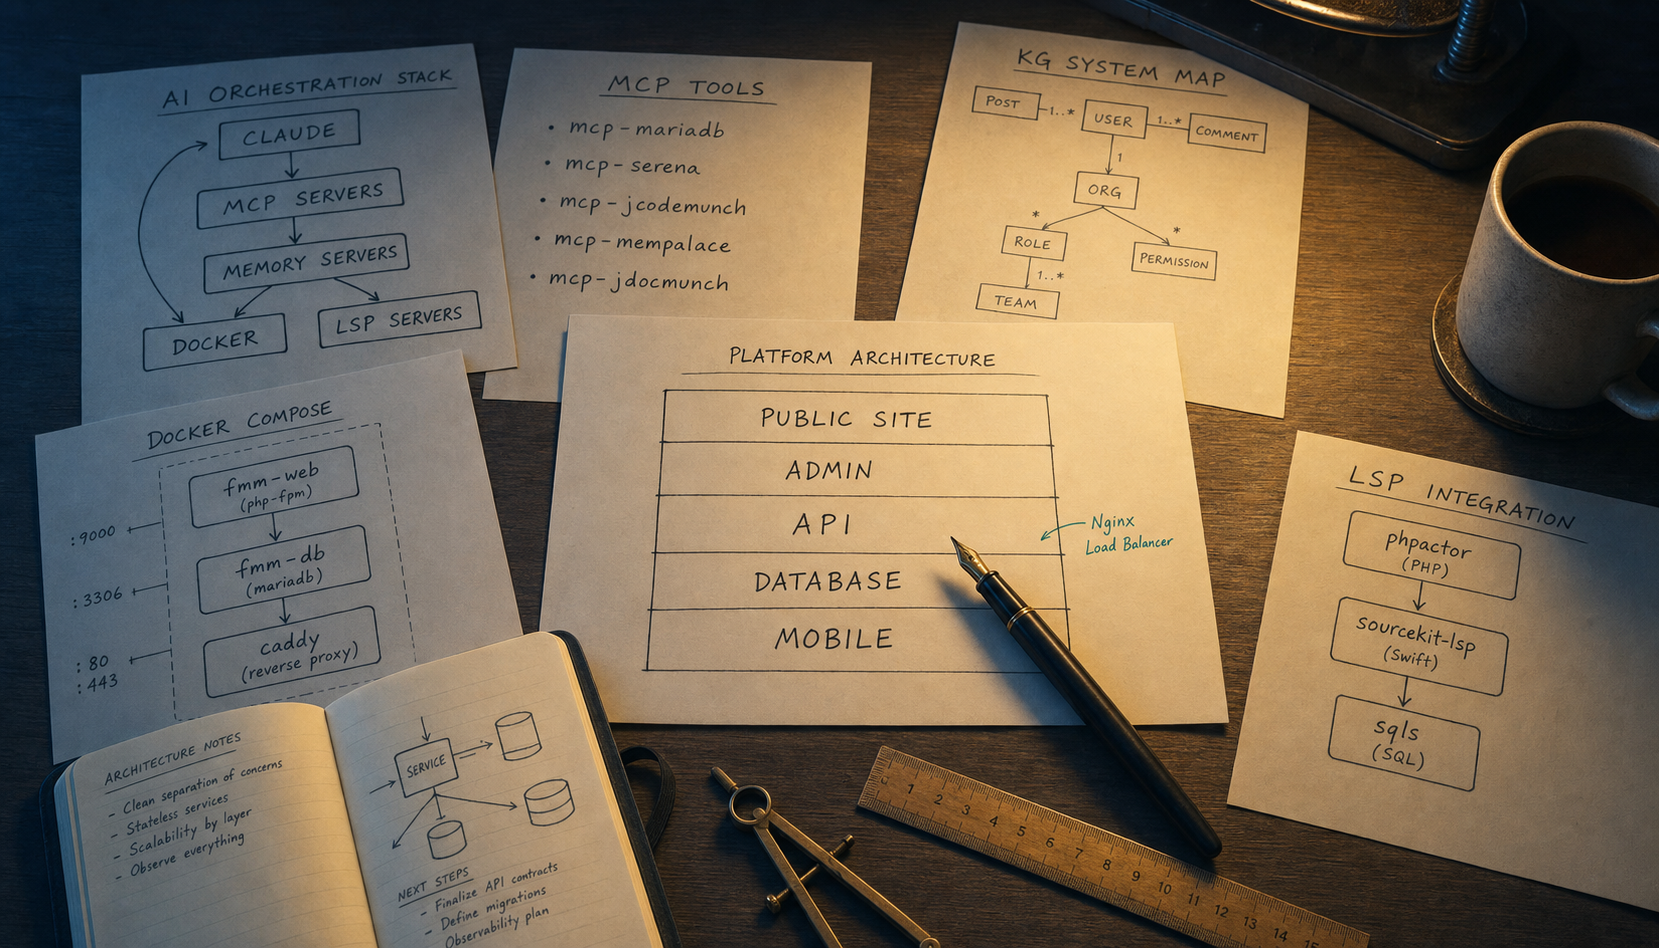 AI ORCHESTRATION STACK
CLAUDE
MCP SERVERS
MEMORY SERVERS
DOCKER
LSP SERVERS
MCP TOOLS
• mcp-mariadb
• mcp-serena
• mcp-jcodemunch
• mcp-mempalace
• mcp-jdocmunch
KG SYSTEM MAP
POST
1..*
USER
1..*
COMMENT
1
ORG
*
*
ROLE
PERMISSION
1..*
TEAM
DOCKER COMPOSE
fmm-web
(php-fpm)
:9000
fmm-db
(mariadb)
:3306
caddy
(reverse proxy)
:80
:443
PLATFORM ARCHITECTURE
PUBLIC SITE
ADMIN
API
DATABASE
MOBILE
Nginx
Load Balancer
LSP INTEGRATION
phpactor
(PHP)
sourcekit-lsp
(Swift)
sqls
(SQL)
ARCHITECTURE NOTES
- Clean separation of concerns
- Stateless services
- Scalability by layer
- Observe everything
SERVICE
NEXT STEPS
- Finalize API contracts
- Define migrations
- Observability plan
0 1 2 3 4 5 6 7 8 9 10 11 12 13 14 15